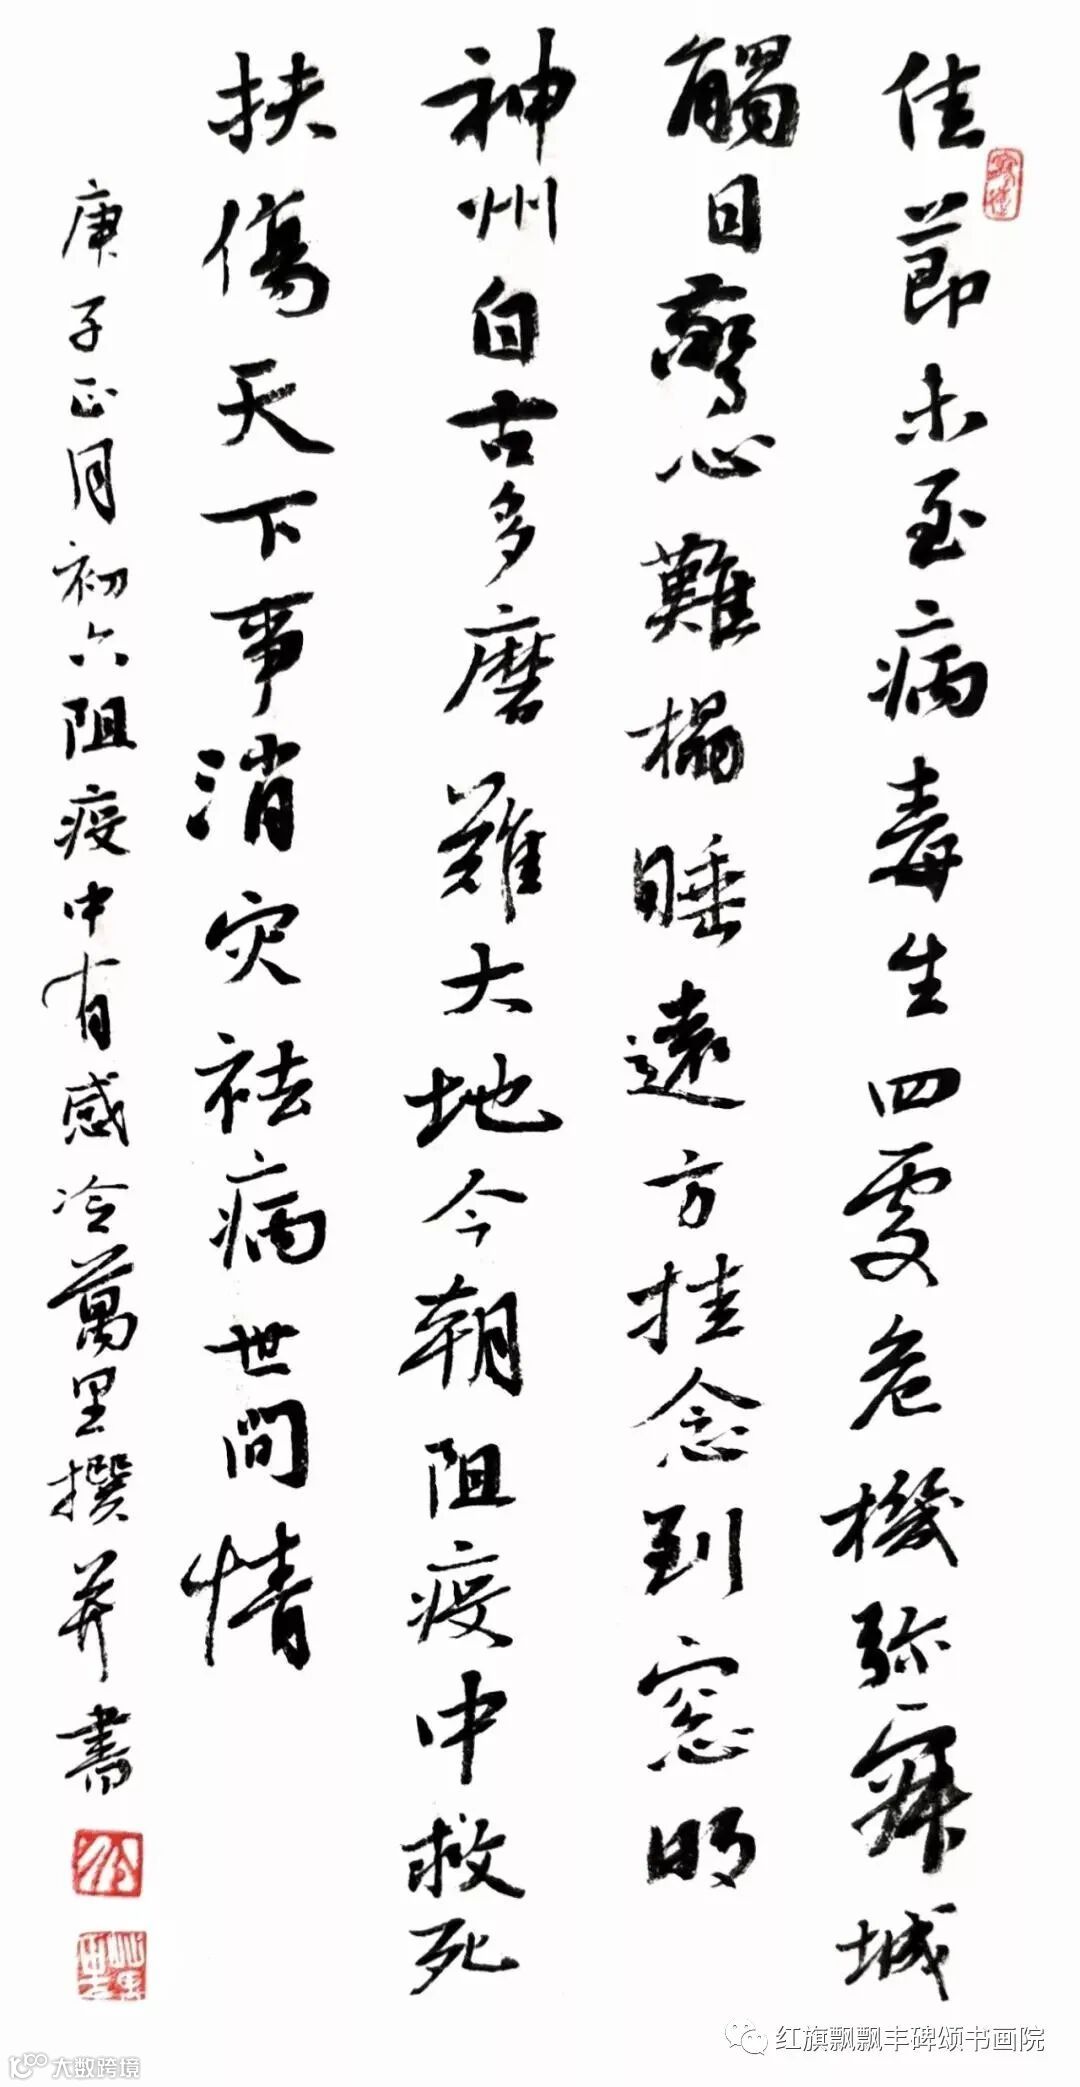 佳節未至病毒生四處危機弥舜城
觸目驚心難榻睡遠方挂念到窓明
神州自古多磨難大地今朝阻疫中救死
扶傷天下事消灾祛病世間情
庚子正月初六阻疫中有感冷萬里撰并書
红旗飘飘丰碑颂书画院
大数跨境